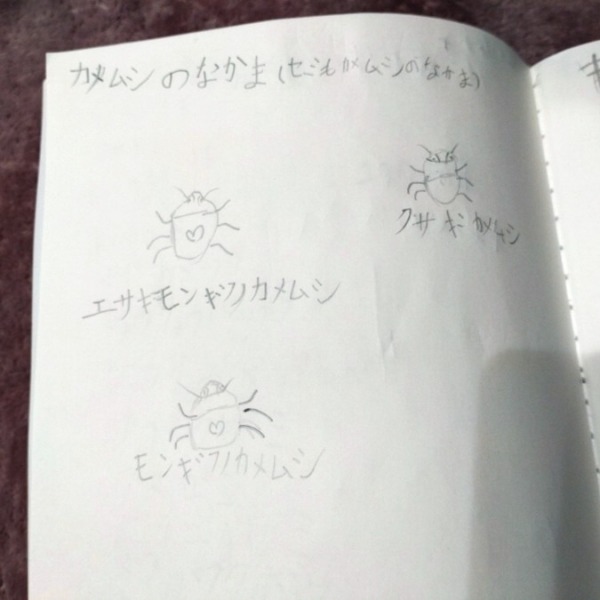 カメムシのなかま(セミもカメムシのなかま)
クサギカメムシ
エサキモンキツノカメムシ
モンキツノカメムシ